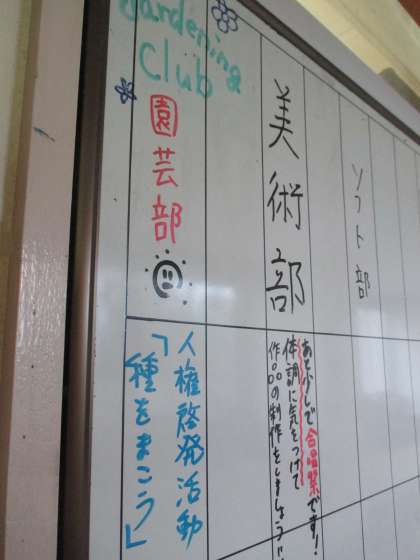 Gardening
Club
園芸部
人権啓発活動
「種をまこう」
美術部
あと少しで合唱祭です！
体調に気をつけて
作品の制作をしましょう！！
ソフト部